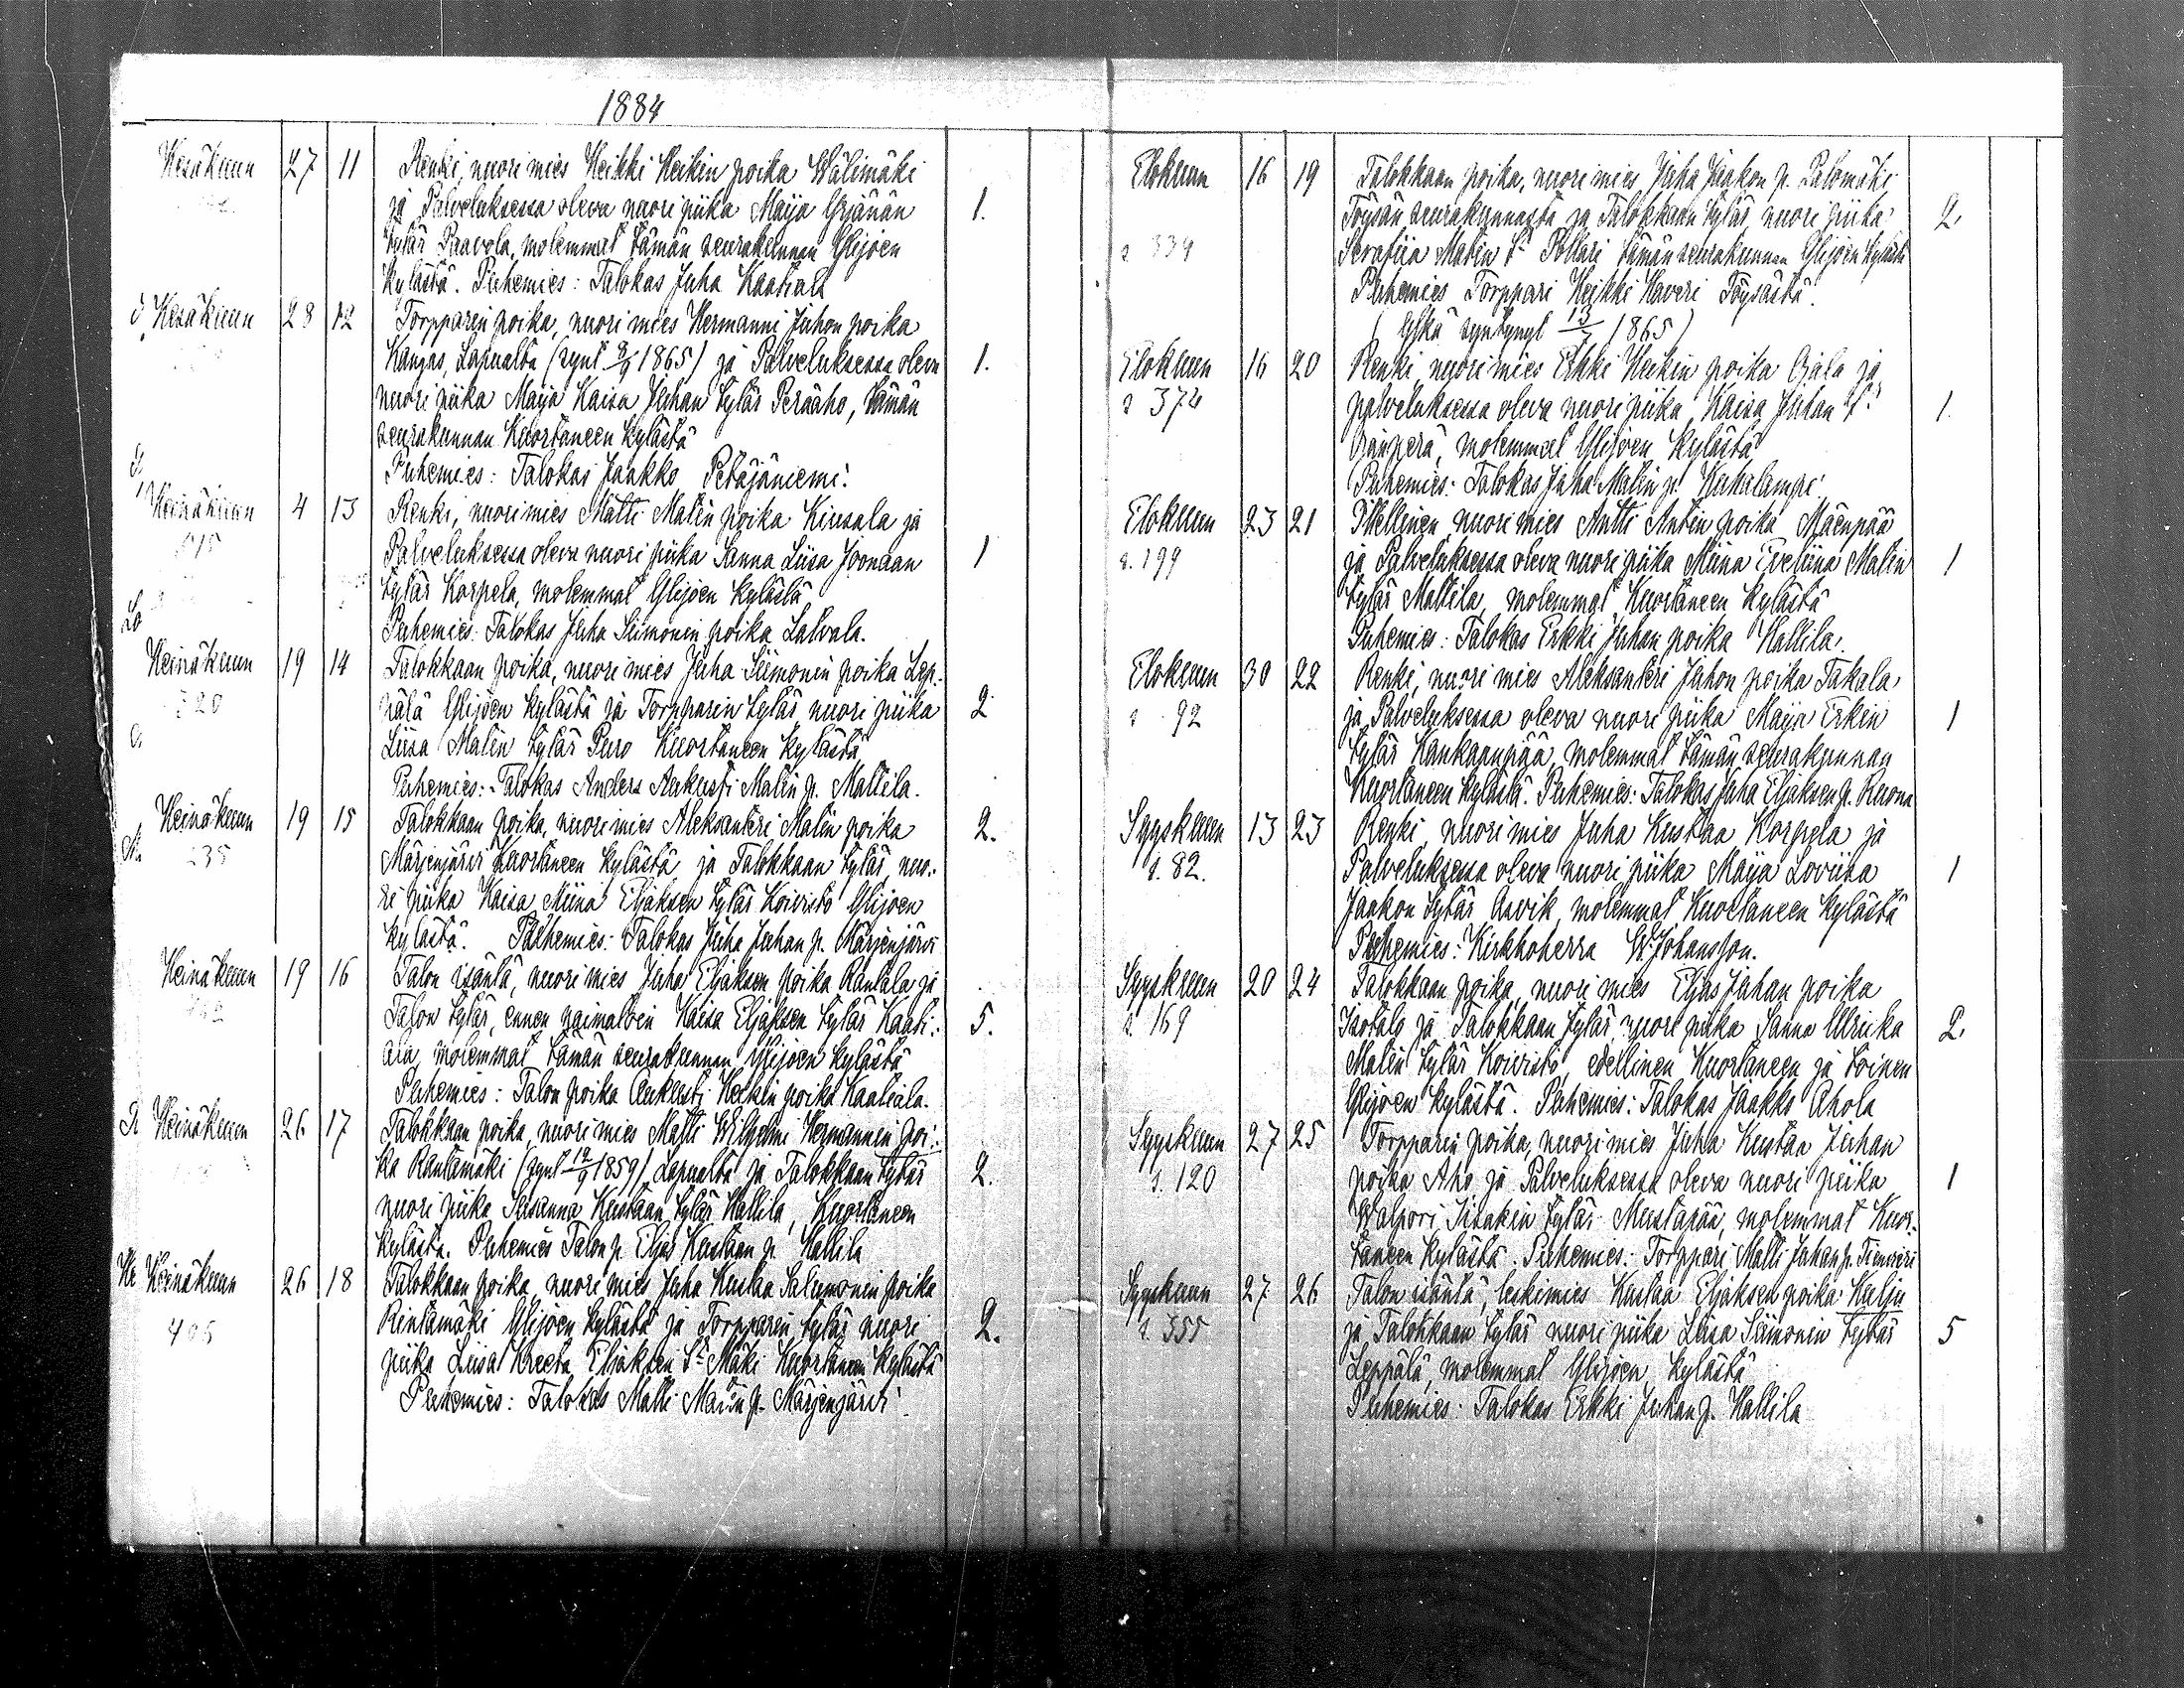 1884
Kesäkuun 27 11 Renki, nuori mies Heikki Heikin poika Wälimäki
ja Palveluksessa oleva nuori piika Maija Erjänän 1.
tytär Paavola, molemmat tämän seurakunnan Ylijoen
kylästä. Puhemies: Talokas Juha Kaatiala
Kesäkuun 28 12 Torpparin poika, nuori mies Hermanni Juhon poika
Kangas, Lapualta (synt. 1865) ja Palveluksessa oleva 1.
nuori piika Maija Kaisa Juhan tytär Peräaho, tämän
seurakunnan Kuortaneen kylästä
Puhemies: Talokas Jaakko Petäjäniemi.
Heinäkuun 4 13 Renki, nuori mies Matti Matin poika Kiusala ja
Palveluksessa oleva nuori piika Sanna Liisa Joonaan 1
tytär Korpela, molemmat Ylijoen kylästä
Puhemies: Talokas Juha Siimonin poika Latvala.
Heinäkuun 19 14 Talokkaan poika, nuori mies Juha Siimonin poika Lep-
320 pälä Ylijoen kylästä ja Torpparin tytär nuori piika 2
Liisa Matin tytär Puro Kuortaneen kylästä
Puhemies: Talokas Anders Aukusti Matin p. Mattila.
Heinäkuun 19 15 Talokkaan poika, nuori mies Aleksanteri Matin poika 2.
235 Märjenjärvi Kuortaneen kylästä ja Talokkaan tytär, nuo-
ri piika Kaisa Miina Eljaksen tytär Koivisto Ylijoen
kylästä. Puhemies: Talokas Juha Juhan p. Märjenjärvi
Heinäkuun 19 16 Talon isäntä, nuori mies Juha Eljaksen poika Rantala ja
442 Talon tytär, ennen naimatoin Kaisa Eljaksen tytär Kaati- 5.
ala, molemmat tämän seurakunnan Ylijoen kylästä
Puhemies: Talon poika Aukusti Heikin poika Kaatiala.
Heinäkuun 26 17 Talokkaan poika, nuori mies Matti Wilhelmi Hermannin poi-
ka Rantamäki (synt 12/9 1859) Lapualta ja Talokkaan tytär 2.
nuori piika Susanna Kustaan tytär Hallila, Kuortaneen
kylästä. Puhemies Talon p. Eljas Kustaan p. Hallila
Heinäkuun 26 18 Talokkaan poika, nuori mies Juha Kustaa Salumonin poika
405 Rintamäki Ylijoen kylästä ja Torpparin tytär nuori 2.
piika Liisa Kreeta Eljaksen tr Mäki Kuortaneen kylästä
Puhemies: Talokas Matti Matin p. Märjenjärvi.
Elokuun 16 19 Talokkaan poika, nuori mies Juha Jaakon p. Palomäki
Töysän seurakunnasta ja Talokkaan tytär nuori piika 2.
s 339 Serafiia Matin tr Pollari tämän seurakunnan Ylijoen kylästä
Puhemies Torppari Heikki Haveri Töysästä.
(Ylkä syntynyt 13/7 1865)
Elokuun 16 20 Renki nuori mies Erkki Heikin poika Ojala ja
s 374 palveluksessa oleva nuori piika Kaisa Juhan tr 1.
Ojanperä, molemmat Ylijoen kylästä
Puhemies: Talokas Juha Matin p. Kuhalampi.
Elokuun 23 21 Itsellinen, nuori mies Antti Antin poika Mäenpää
s. 199 ja Palveluksessa oleva nuori piika Miina Eveliina Matin 1
tytär Mattila, molemmat Kuortaneen kylästä
Puhemies: Talokas Erkki Juhan poika Hallila.
Elokuun 30 22 Renki, nuori mies Aleksanteri Juhon poika Takala
s 92 ja Palveluksessa oleva nuori piika Maija Erkin 1
tytär Kankaanpää, molemmat tämän seurakunnan
Kuortaneen kylästä. Puhemies: Talokas Juha Eljaksen p. Ruona
Syyskuun 13 23 Renki, nuori mies Juha Kustaa Korpela ja
s. 82. Palveluksessa oleva nuori piika Maija Loviisa 1
Jaakon tytär Asvik, molemmat Kuortaneen kylästä
Puhemies: Kirkkoherra W. Johansson.
Syyskuun 20 24 Talokkaan poika, nuori mies Eljas Juhan poika
s 169 Isotalo ja Talokkaan tytär, nuori piika Sanna Ulriika 2.
Matin tytär Koivisto, edellinen Kuortaneen ja toinen
Ylijoen kylästä. Puhemies: Talokas Jaakko Ahola
Syyskuun 27 25 Torpparin poika, nuori mies Juha Kustaa Juhan
s. 120 poika Aho ja Palveluksessa oleva nuori piika 1
Walpori Iisakin tytär Mustapää, molemmat Kuor-
taneen kylästä. Puhemies: Torppari Matti Juhan p.
Syyskuun 27 26 Talon isäntä, leskimies Kustaa Eljaksen poika Kulju
s. 355 ja Talokkaan tytär nuori piika Liisa Siimonin tytär 5
Leppälä, molemmat Ylijoen kylästä
Puhemies: Talokas Erkki Juhan p. Hallila